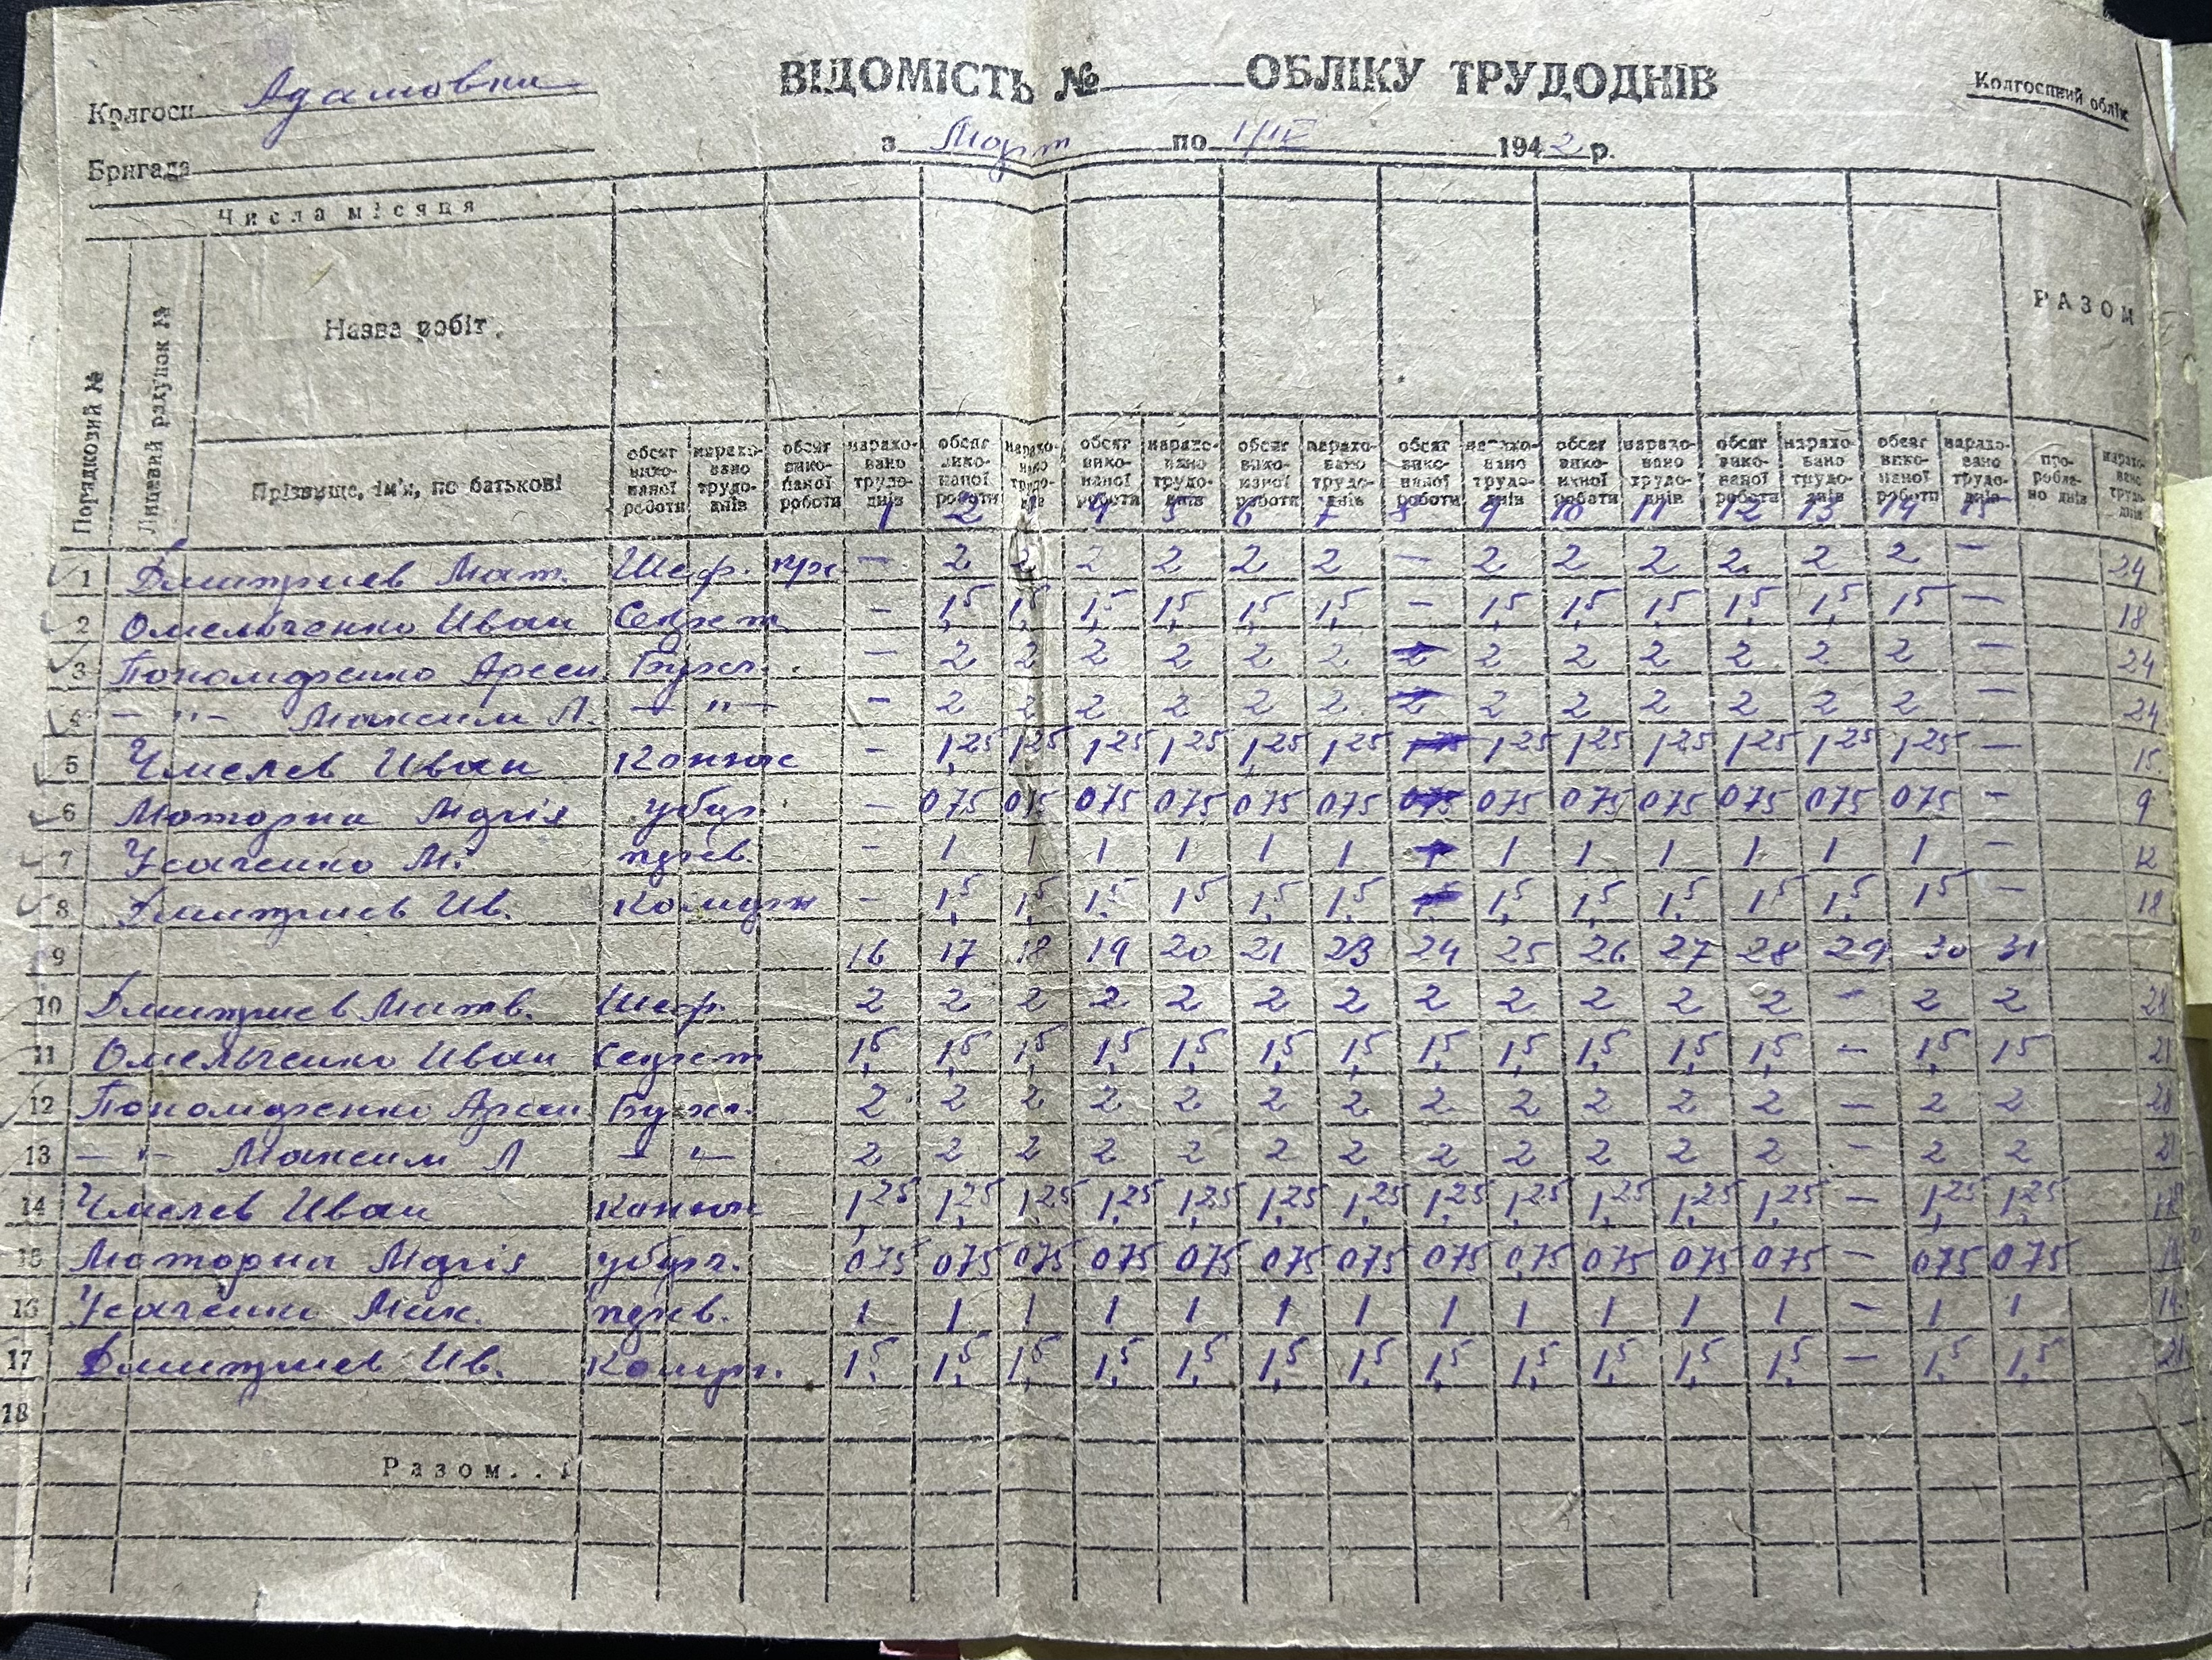 Колгосп Адамовка
ВІДОМІСТЬ № ОБЛІКУ ТРУДОДНІВ
Колгоспний облік
з Март по 1/IV 1942 р.
Бригада
Числа місяця
Порядковий №
Лицевий рахунок №
Назва робіт.
РАЗОМ
Прізвище, ім'я, по батькові
обсяг виконаної роботи нараховано трудоднів обсяг виконаної роботи нараховано трудоднів обсяг виконаної роботи нараховано трудоднів обсяг виконаної роботи нараховано трудоднів обсяг виконаної роботи нараховано трудоднів обсяг виконаної роботи нараховано трудоднів обсяг виконаної роботи нараховано трудоднів обсяг виконаної роботи нараховано трудоднів обсяг виконаної роботи нараховано трудоднів пророблено днів нараховано трудоднів
1 2 4 5 6 7 8 9 10 11 12 13 14 15
1 Дмитриев Мат. Шеф. пр. — 2 2 2 2 2 2 — 2 2 2 2 2 2 — 24
2 Омельченко Иван Секрет — 1,5 1,5 1,5 1,5 1,5 1,5 — 1,5 1,5 1,5 1,5 1,5 1,5 — 18
3 Пономаренко Арсен Бухг. — 2 2 2 2 2 2 2 2 2 2 2 2 — 24
4 — " — Максим Л. — " — — 2 2 2 2 2 2 2 2 2 2 2 2 — 24
5 Чмелев Иван Конюх — 1,25 1,25 1,25 1,25 1,25 1,25 1,25 1,25 1,25 1,25 1,25 1,25 — 15
6 Моторна Марія убир. — 075 075 075 075 075 075 075 075 075 075 075 075 — 9
7 Усаченко М. — 1 1 1 1 1 1 1 1 1 1 1 1 — 12
8 Дмитриев Ив. — 1,5 1,5 1,5 1,5 1,5 1,5 1,5 1,5 1,5 1,5 1,5 1,5 — 18
9 16 17 18 19 20 21 23 24 25 26 27 28 29 30 31
10 Дмитриев Матв. Шеф. 2 2 2 2 2 2 2 2 2 2 2 2 — 2 2 28
11 Омельченко Иван Секрет 1,5 1,5 1,5 1,5 1,5 1,5 1,5 1,5 1,5 1,5 1,5 1,5 — 1,5 1,5 21
12 Пономаренко Арсен Бухг. 2 2 2 2 2 2 2 2 2 2 2 2 — 2 2 28
13 — " — Максим Л — " — 2 2 2 2 2 2 2 2 2 2 2 2 — 2 2
14 Чмелев Иван Конюх 1,25 1,25 1,25 1,25 1,25 1,25 1,25 1,25 1,25 1,25 1,25 1,25 — 1,25 1,25
15 Моторна Марія убир. 075 075 075 075 075 075 075 075 075 075 075 075 — 075 075
16 Усаченко Мак. 1 1 1 1 1 1 1 1 1 1 1 1 — 1 1 14
17 Дмитриев Ив. 1,5 1,5 1,5 1,5 1,5 1,5 1,5 1,5 1,5 1,5 1,5 1,5 — 1,5 1,5 21
18
Разом..